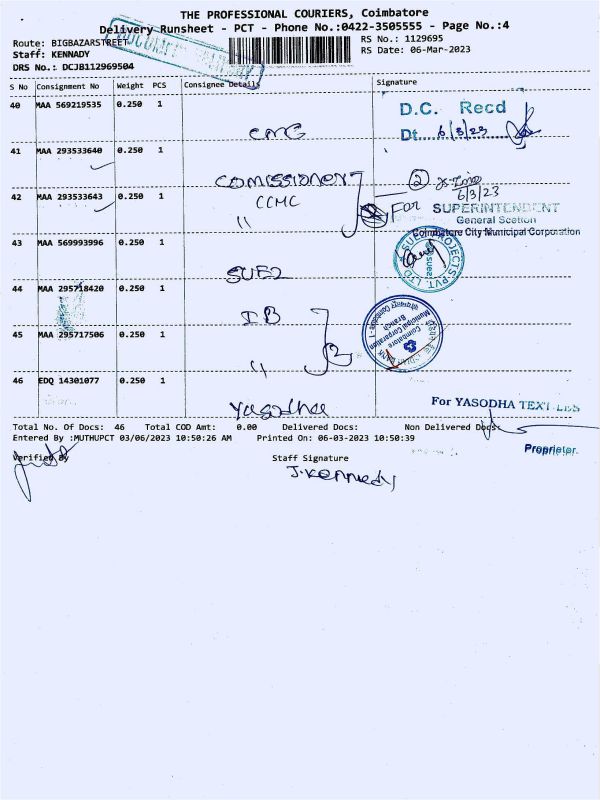 THE PROFESSIONAL COURIERS, Coimbatore
Delivery Runsheet - PCT - Phone No.:0422-3505555 - Page No.:4
Route: BIGBAZARSTREET
RS No.: 1129695
Staff: KENNADY
RS Date: 06-Mar-2023
DRS No.: DCJB112969504
S No Consignment No Weight PCS Consignee Details Signature
40 MAA 569219535 0.250 1
D.C. Recd
CMC
Dt..... 6/3/23
41 MAA 293533640 0.250 1
COMISSIONER
2
6/3/23
42 MAA 293533643 0.250 1
CCMC
For
SUPERINTENDENT
"
General Section
Coimbatore City Municipal Corporation
43 MAA 569993996 0.250 1
SUEZ PROJECTS PVT. LTD
SUEZ
44 MAA 295718420 0.250 1
IB
2
Coimbatore
Municipal Corporation
Branch
45 MAA 295717506 0.250 1
"
46 EDQ 14301077 0.250 1
Yasodha
For YASODHA TEXTILES
Total No. Of Docs: 46 Total COD Amt: 0.00 Delivered Docs: Non Delivered Docs:
Entered By :MUTHUPCT 03/06/2023 10:50:26 AM Printed On: 06-03-2023 10:50:39
Verified By
Staff Signature
Proprietor.
J.Kennedy